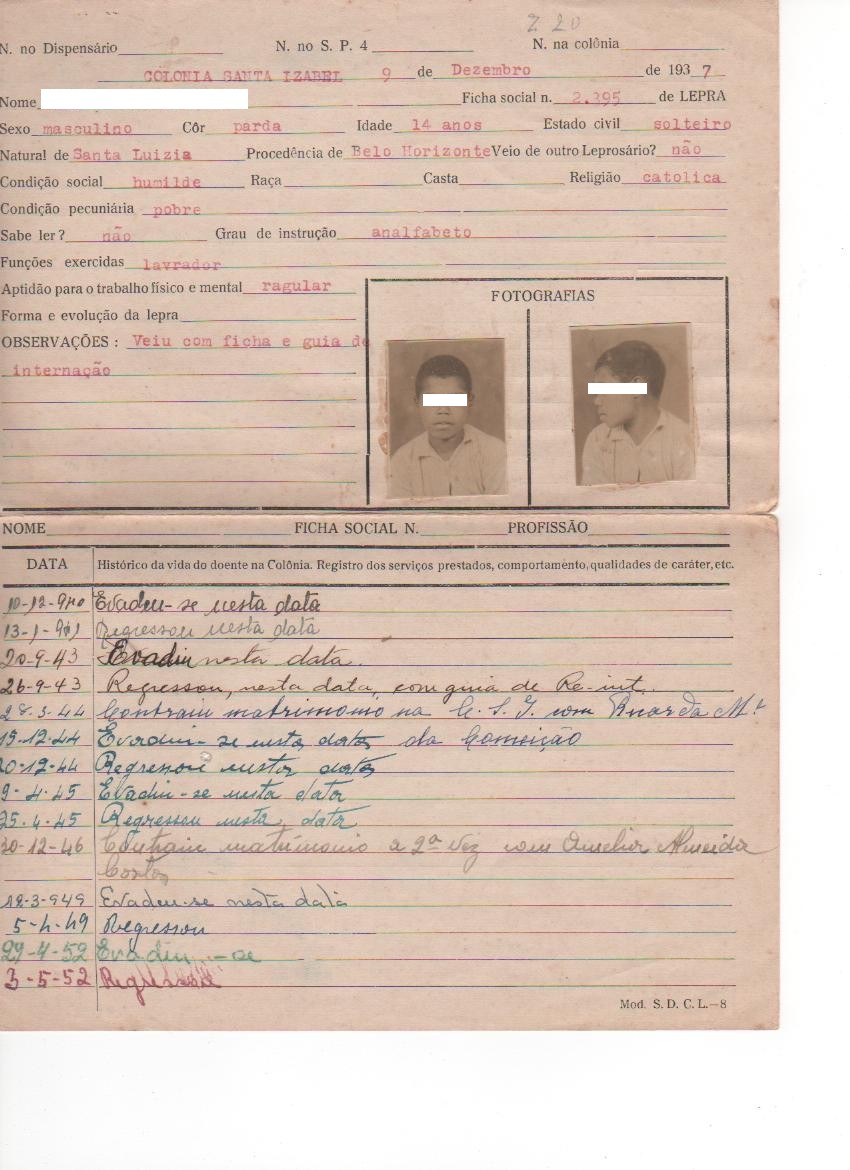 Z 20
N. no Dispensário N. no S. P. 4 N. na colônia
COLONIA SANTA IZABEL 9 de Dezembro de 1937
Nome Ficha social n. 2.395 de LEPRA
Sexo masculino Côr parda Idade 14 anos Estado civil solteiro
Natural de Santa Luizia Procedência de Belo Horizonte Veio de outro Leprosário? não
Condição social humilde Raça Casta Religião catolica
Condição pecuniária pobre
Sabe ler? não Grau de instrução analfabeto
Funções exercidas lavrador
Aptidão para o trabalho físico e mental ragular
Forma e evolução da lepra
OBSERVAÇÕES : Veiu com ficha e guia de
internação
FOTOGRAFIAS
NOME FICHA SOCIAL N. PROFISSÃO
DATA Histórico da vida do doente na Colônia. Registro dos serviços prestados, comportamento, qualidades de caráter, etc.
10-12-940 Evadiu-se nesta data
13-1-941 Regressou nesta data
20-9-43 Evadiu nesta data.
26-9-43 Regressou, nesta data, com guia de Re-int.
28-3-44 Contraiu matrimonio na C. S. I. com Mª
15-12-44 Evadiu-se nesta data da Conceição
20-12-44 Regressou nesta data
9-4-45 Evadiu-se nesta data
25-4-45 Regressou nesta data
30-12-46 Contraiu matrimonio a 2ª vez com Almeida
12-3-949 Evadiu-se nesta data
5-4-49 Regressou
29-4-52 Evadiu-se
3-5-52 Regressou
Mod. S. D. C. L.—8